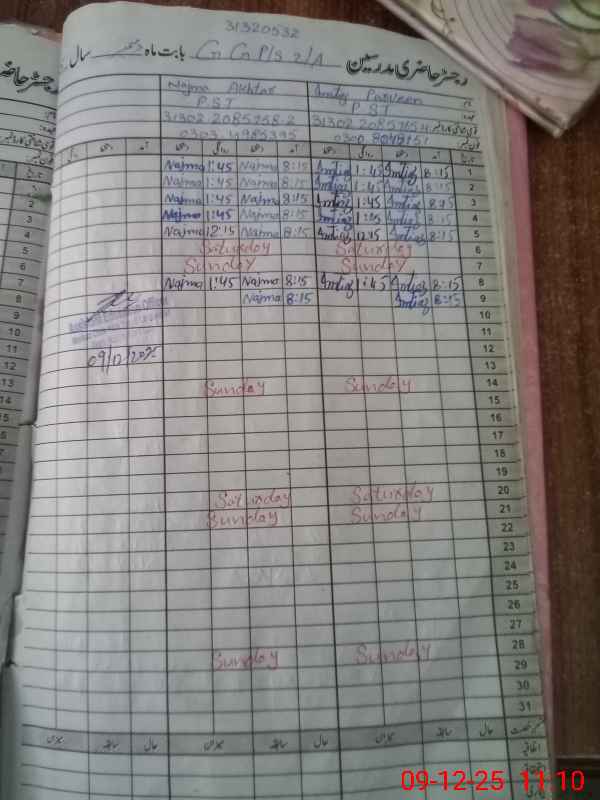 31320532
رجسٹر حاضری مدرسین G G P/S 2/A بابت ماہ دسمبر سال
Najma Akhtar Imtiaz Parveen
P.S.T P.S.T
0303 4985395
تاریخ
Najma 1:45 Najma 8:15 Imtiaz 1:45 Imtiaz 8:15 1
Najma 1:45 Najma 8:15 Imtiaz 1:45 Imtiaz 8:15 2
Najma 1:45 Najma 8:15 Imtiaz 1:45 Imtiaz 8:15 3
Najma 1:45 Najma 8:15 Imtiaz 1:45 Imtiaz 8:15 4
Najma 12:15 Najma 8:15 Imtiaz 12:15 Imtiaz 8:15 5
Saturday Saturday 6
Sunday Sunday 7
Najma 1:45 Najma 8:15 Imtiaz 1:45 Imtiaz 8:15 8
Najma 8:15 Imtiaz 8:15 9
10
11
09/12/2025 12
13
Sunday Sunday 14
15
16
17
18
19
Saturday Saturday 20
Sunday Sunday 21
22
23
24
25
26
27
Sunday Sunday 28
29
30
31
میزان سابقہ حال میزان سابقہ حال میزان سابقہ حال
اتفاقیہ
09-12-25 11:10